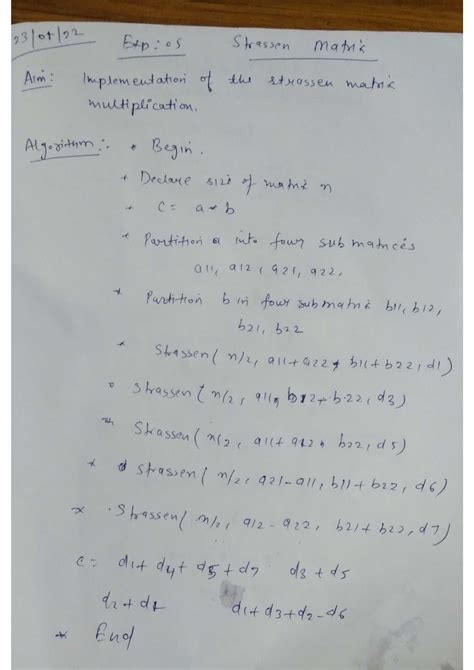 23/05/22
Exp: 05 Strassen Matrix
Aim: Implementation of the strassen matrix
multiplication.
Algorithm:- * Begin.
* Declare size of matrix n
* C = a * b
* Partition a into four sub matrices
a11, a12, a21, a22,
* Partition b in four submatrix b11, b12,
b21, b22
* Strassen (n/2, a11+a22, b11+b22, d1)
* Strassen (n/2, a11, b12-b22, d3)
* Strassen (n/2, a11+a12, b22, d5)
* strassen (n/2, a21-a11, b11+b22, d6)
* Strassen (n/2, a12-a22, b21+b22, d7)
C = d1+d4+d5+d7 d3+d5
d2+d4 d1+d3+d2-d6
* End